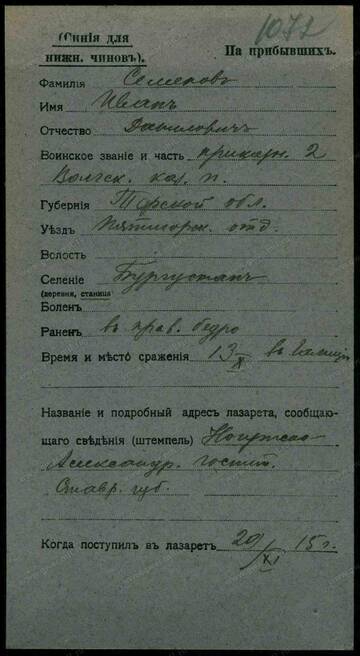 1072
(Синія для
нижн. чиновъ).
На прибывшихъ.
Фамилія Семеновъ
Имя Иванъ
Отчество Даниловичъ
Воинское званіе и часть приказн. 2
Волгск. каз. п.
Губернія Терской обл.
Уѣздъ Пятигорск. отд.
Волость
Селеніе Бургустанъ
(деревня, станица)
Боленъ
Раненъ въ прав. бедро
Время и мѣсто сраженія 13/X въ Галиціи
Названіе и подробный адресъ лазарета, сообщаю-
щаго свѣдѣнія (штемпель)
Александр. госпит.
Ставр. губ.
Когда поступилъ въ лазаретъ 20/XI 15 г.